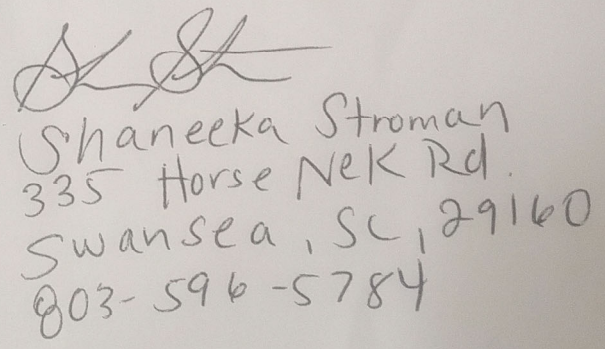 Shaneeka Stroman
335 Horse Nek Rd.
Swansea, SC, 29160
803-596-5784